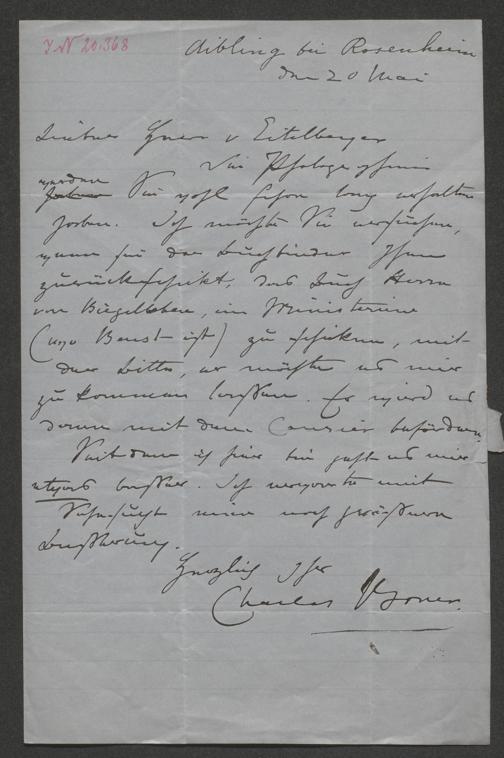 J.N 20.368
Aibling bei Rosenheim
den 20 Mai
Lieber Herr v Eitelberger
Die
werden Sie wohl schon lang erhalten
haben. Ich möchte Sie ersuchen,
wenn sie der Buchbinder Ihnen
zurückschickt, das Buch Herrn
von Biegeleben, im Ministerium
(wo Beust ist) zu schicken, mit
der Bitte, er möchte es mir
zu kommen lassen. Er wird es
dann mit dem Courier befördern.
Seitdem ich hier bin geht es mir
etwas besser. Ich erwarte mit
Sehnsucht eine noch größere
Besserung.
Herzlich Ihr
Charles